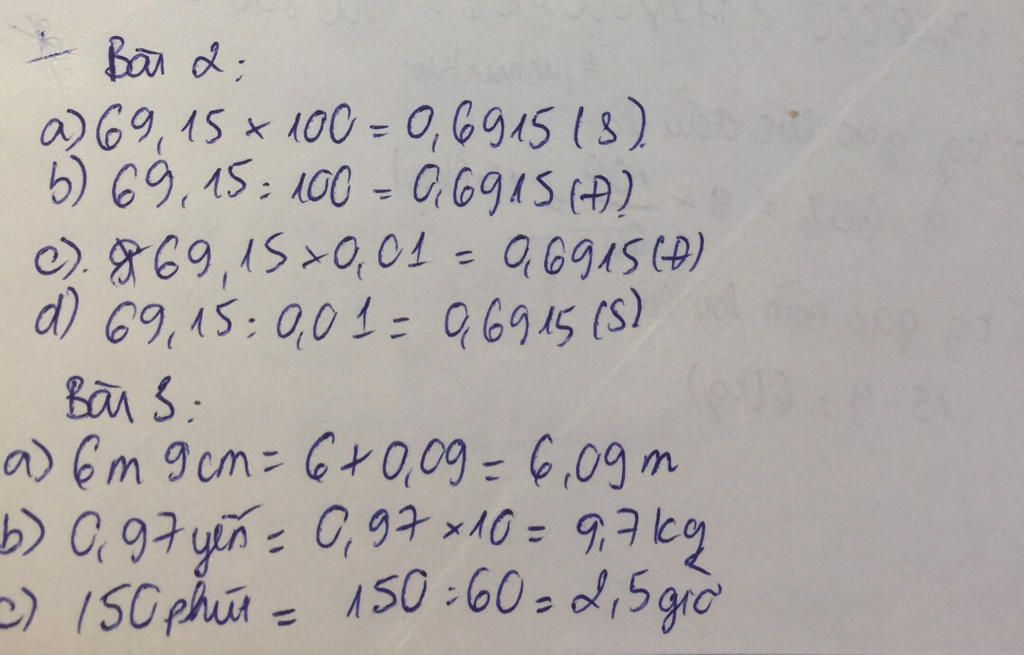 Bài 2:
a) 69,15 × 100 = 0,6915 (S).
b) 69,15 : 100 = 0,6915 (Đ).
c). 69,15 × 0,01 = 0,6915 (Đ)
d) 69,15 : 0,01 = 0,6915 (S)
Bài 3:
a) 6m 9cm = 6 + 0,09 = 6,09 m
b) 0,97 yến = 0,97 × 10 = 9,7 kg
c) 150 phút = 150 : 60 = 2,5 giờ